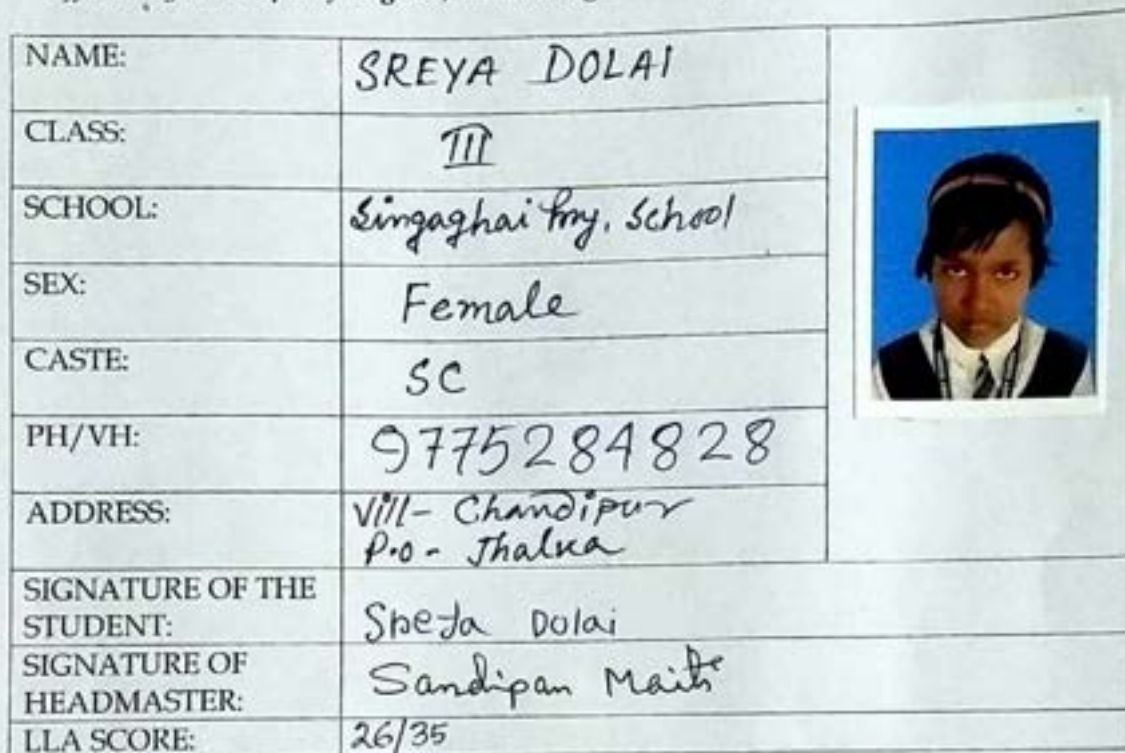 NAME: SREYA DOLAI
CLASS: III
SCHOOL: Singaghai Pry, School
SEX: Female
CASTE: SC
PH/VH: 9775284828
ADDRESS: Vill- Chandipur
P.O- Jhalka
SIGNATURE OF THE
STUDENT: Sreya Dolai
SIGNATURE OF
HEADMASTER: Sandipan Maiti
LLA SCORE: 26/35